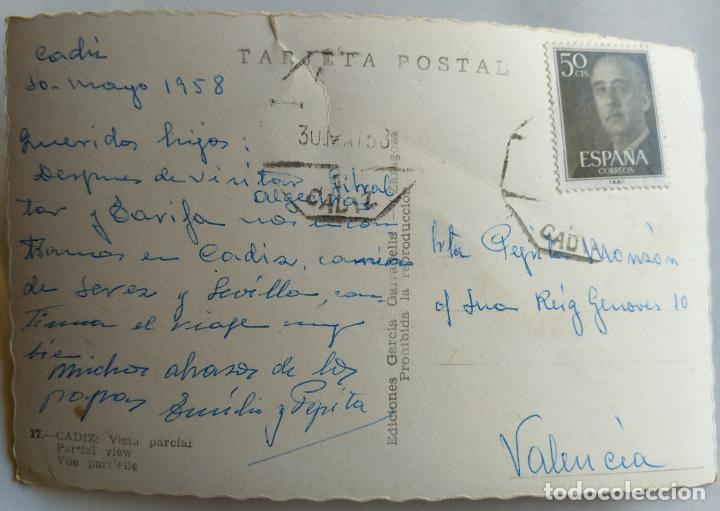 TARJETA POSTAL
Cadiz
30-mayo 1958
Queridos hijos:
Despues de visitar Gibral
Algeciras
tar y Tarifa nos encon
tramos en Cadiz, camino
de Jerez y Sevilla, con-
tinua el viaje muy
bien
muchos abrasos de los
papas Emilio y Pepita
17.—CADIZ: Vista parcial
Partial view
Vue partielle
Ediciones García Garrabella - Zaragoza
Prohibida la reproducción
CADIZ
50 CTS
ESPAÑA
CORREOS
CADIZ
Srta Pepita Monzón
Reig Genoves 10
Valencia
todocoleccion.net